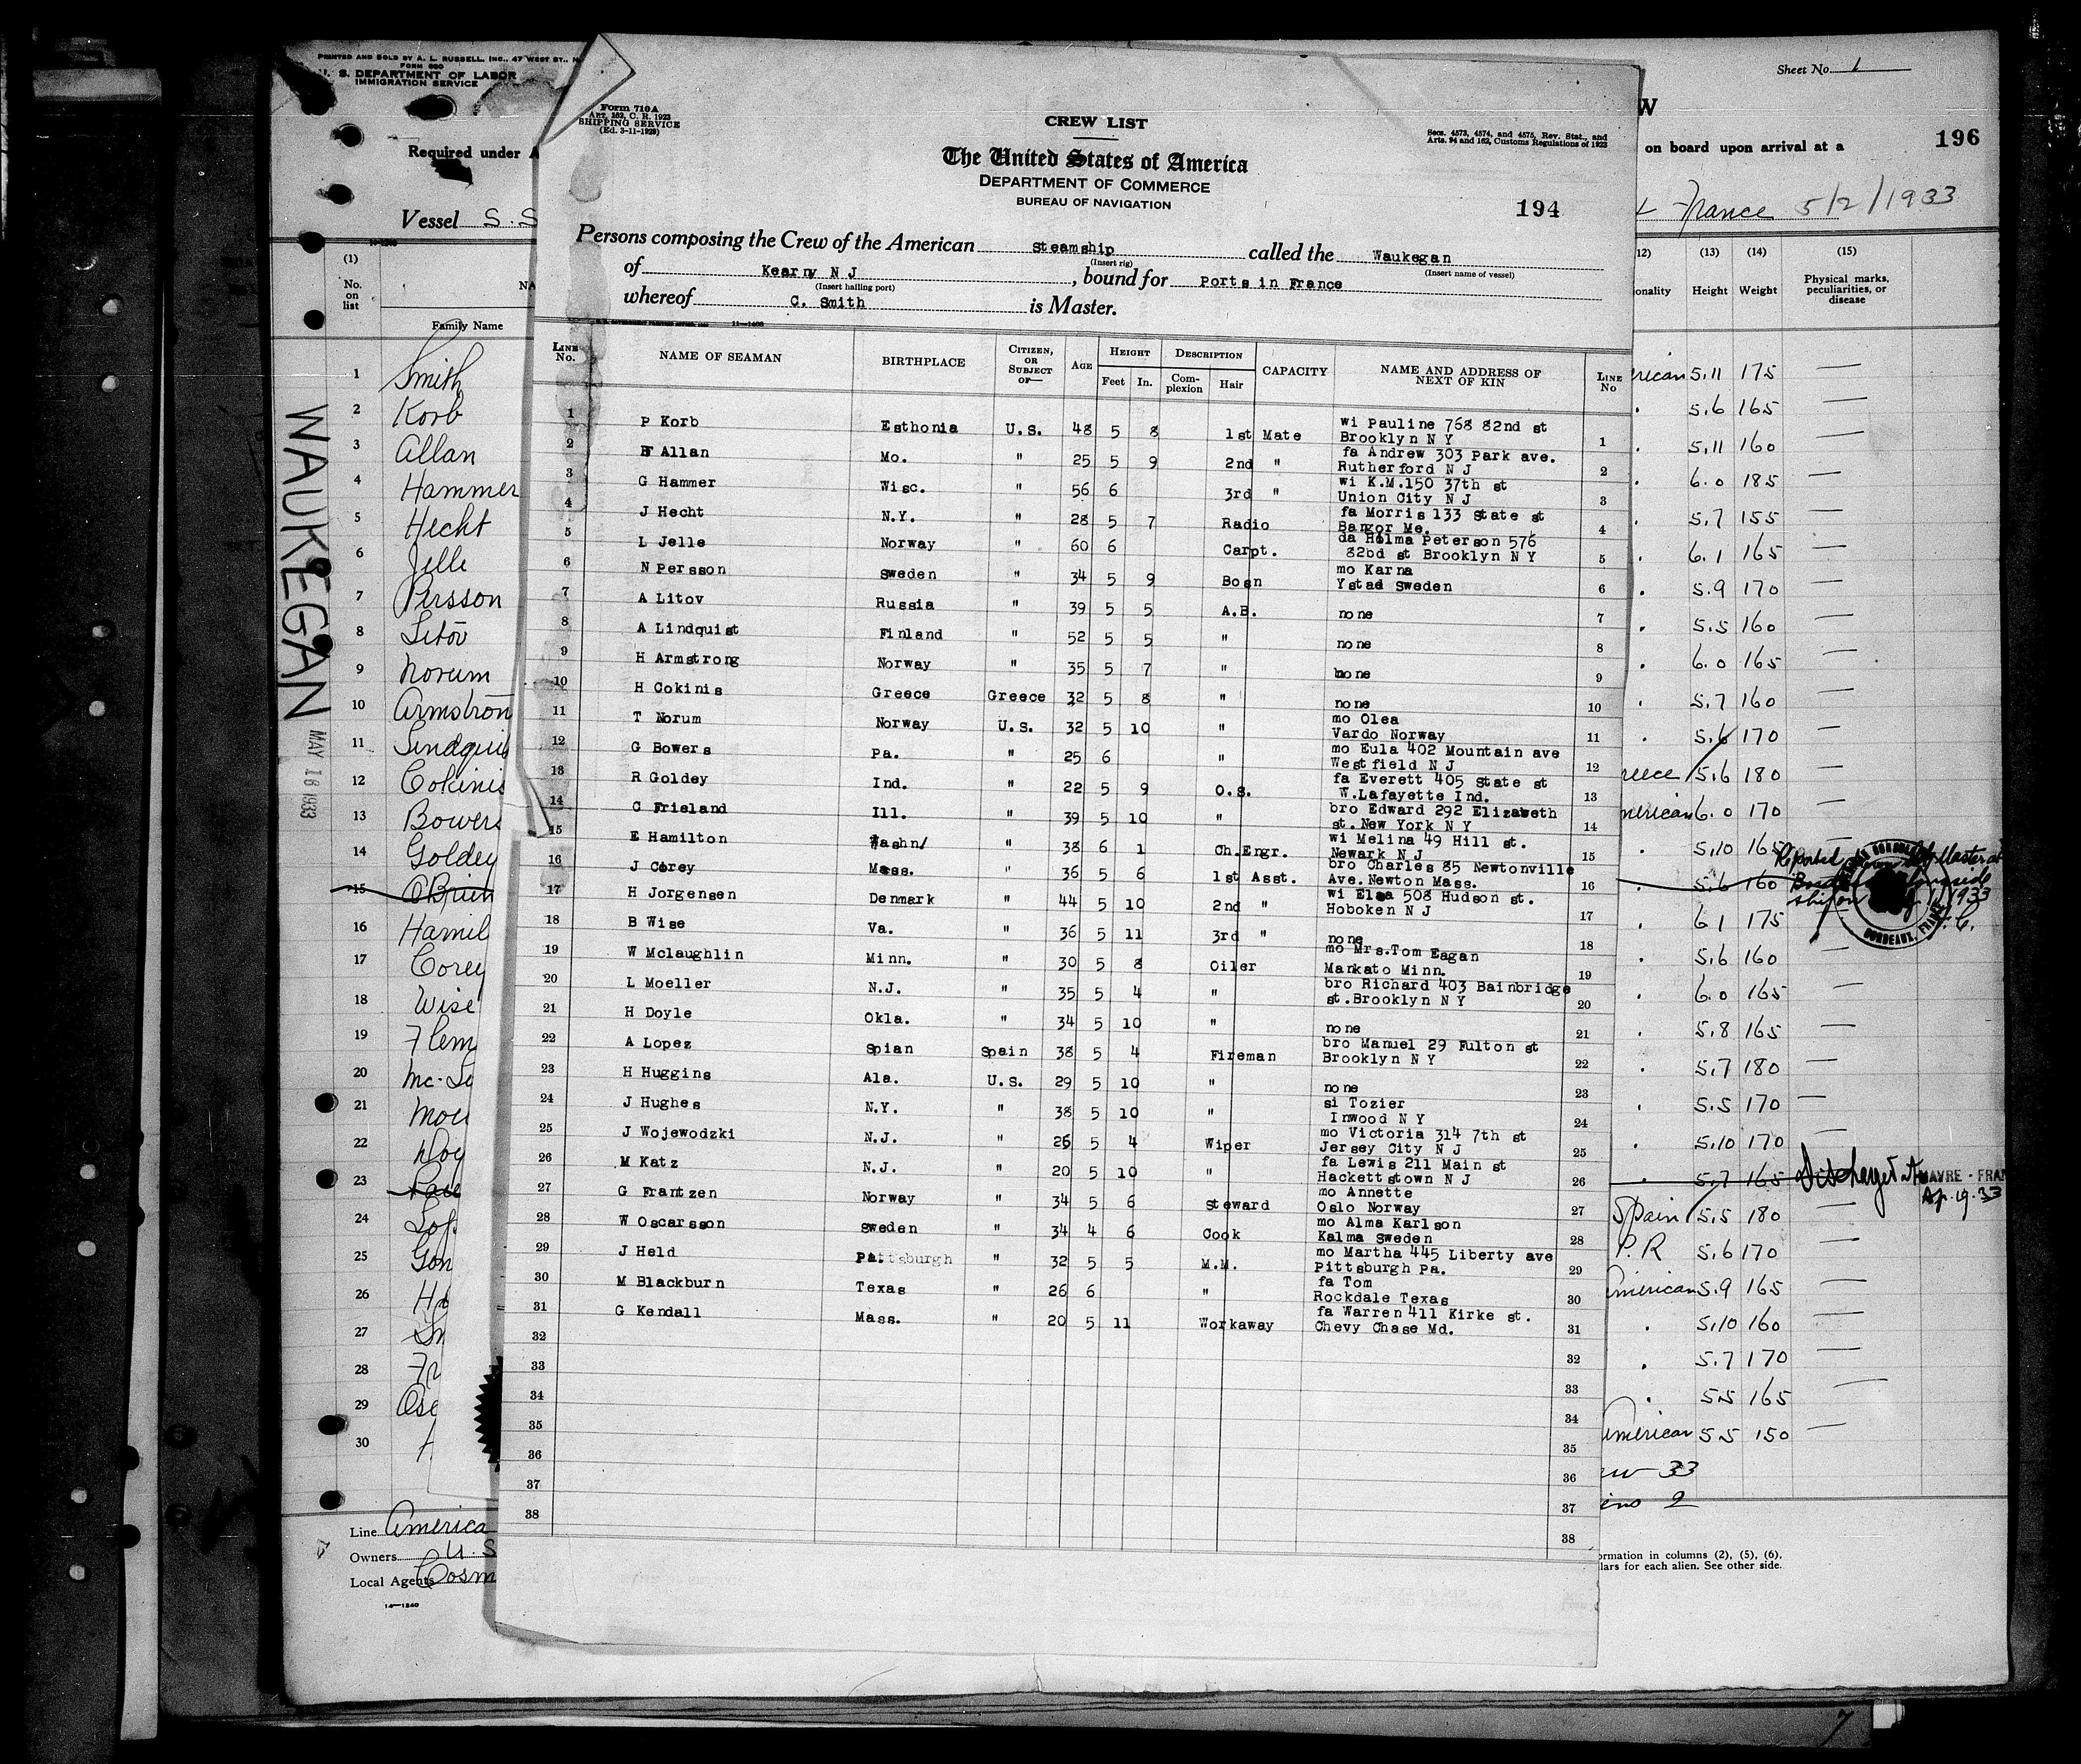 PRINTED AND SOLD BY A. L. RUSSELL, INC., 47 WEST ST.,
FORM 680
U. S. DEPARTMENT OF LABOR
IMMIGRATION SERVICE
Required under A
Vessel S.S
(1)
No. on list
NA
Family Name
1 Smith
2 Korb
3 Allan
4 Hammer
5 Hecht
6 Jelle
7 Persson
8 Litov
9 Norum
10 Armstron
11 Lindquis
12 Cokinis
13 Bowers
14 Goldey
15 O'Brien
16 Hamil
17 Corey
18 Wise
19 Flem
20 Mc-L
21 Moe
22 Doy
23
24 Lop
25 Gon
26 H
27
28 Fr
29 Osc
30
Line America
Owners U.S
Local Agents Cosm
14—1240
WAUKEGAN
MAY 18 1933
Form 710A
Art. 162, C. R. 1923
SHIPPING SERVICE
(Ed. 3-11-1929)
CREW LIST
The United States of America
DEPARTMENT OF COMMERCE
BUREAU OF NAVIGATION
Secs. 4573, 4574, and 4575, Rev. Stat., and
Arts. 94 and 162, Customs Regulations of 1923
194
Persons composing the Crew of the American Steamship called the Waukegan
(Insert rig) (Insert name of vessel)
of Kearny N J, bound for Ports in France
(Insert hailing port)
whereof C. Smith is Master.
11—1408
LINE No. NAME OF SEAMAN BIRTHPLACE CITIZEN, OR SUBJECT OF— AGE HEIGHT DESCRIPTION CAPACITY NAME AND ADDRESS OF NEXT OF KIN LINE No
Feet In. Complexion Hair
1 P Korb Esthonia U.S. 48 5 8 1st Mate wi Pauline 768 82nd st Brooklyn N Y 1
2 F Allan Mo. " 25 5 9 2nd " fa Andrew 303 Park ave. Rutherford N J 2
3 G Hammer Wisc. " 56 6 3rd " wi K.M.150 37th st Union City N J 3
4 J Hecht N.Y. " 28 5 7 Radio fa Morris 133 State st Bangor Me. 4
5 L Jelle Norway " 60 6 Carpt. da Holma Peterson 576 82bd st Brooklyn N Y 5
6 N Persson Sweden " 34 5 9 Bosn mo Karna Ystad Sweden 6
7 A Litov Russia " 39 5 5 A.B. none 7
8 A Lindquist Finland " 52 5 5 " none 8
9 H Armstrong Norway " 35 5 7 " none 9
10 H Cokinis Greece Greece 32 5 8 " none 10
11 T Norum Norway U.S. 32 5 10 " mo Olea Vardo Norway 11
12 G Bowers Pa. " 25 6 " mo Eula 402 Mountain ave Westfield N J 12
13 R Goldey Ind. " 22 5 9 O.S. fa Everett 405 State st W.Lafayette Ind. 13
14 C Frieland Ill. " 39 5 10 " bro Edward 292 Elizabeth st.New York N Y 14
15 E Hamilton Washn/ " 38 6 1 Ch.Engr. wi Melina 49 Hill st. Newark N J 15
16 J Corey Mass. " 36 5 6 1st Asst. bro Charles 85 Newtonville Ave.Newton Mass. 16
17 H Jorgensen Denmark " 44 5 10 2nd " wi Elsa 508 Hudson st. Hoboken N J 17
18 B Wise Va. " 36 5 11 3rd " none 18
19 W Mclaughlin Minn. " 30 5 8 Oiler mo Mrs.Tom Eagan Mankato Minn. 19
20 L Moeller N.J. " 35 5 4 " bro Richard 403 Bainbridge st.Brooklyn N Y 20
21 H Doyle Okla. " 34 5 10 " none 21
22 A Lopez Spian Spain 38 5 4 Fireman bro Manuel 29 Fulton st Brooklyn N Y 22
23 H Huggins Ala. U.S. 29 5 10 " none 23
24 J Hughes N.Y. " 38 5 10 " si Tozier Inwood N Y 24
25 J Wojewodzki N.J. " 26 5 4 Wiper mo Victoria 314 7th st Jersey City N J 25
26 M Katz N.J. " 20 5 10 " fa Lewis 211 Main st Hackettstown N J 26
27 G Frantzen Norway " 34 5 6 Steward mo Annette Oslo Norway 27
28 W Oscarsson Sweden " 34 4 6 Cook mo Alma Karlson Kalma Sweden 28
29 J Held Pa. " 32 5 5 M.M. mo Martha 445 Liberty ave Pittsburgh Pa. 29
30 M Blackburn Texas " 26 6 " fa Tom Rockdale Texas 30
31 G Kendall Mass. " 20 5 11 Workaway fa Warren 411 Kirke st. Chevy Chase Md. 31
32 32
33 33
34 34
35 35
36 36
37 37
38 38
Sheet No. 1
W
196
on board upon arrival at a
France 5/2/1933
12) (13) (14) (15)
onality Height Weight Physical marks, peculiarities, or disease
rican 5.11 175 —
" 5.6 165 —
" 5.11 160 —
" 6.0 185 —
" 5.7 155 —
" 6.1 165 —
" 5.9 170 —
" 5.5 160 —
" 6.0 165 —
" 5.7 160 —
" 5.6 170 —
reece 5.6 180 —
merican 6.0 170 —
" 5.10 165
" 5.6 160
Reported by Master
1933
BORDEAUX, FRANCE
" 6 1 175
" 5.6 160 —
" 6.0 165 —
" 5.8 165 —
" 5.7 180 —
" 5.5 170 —
" 5.10 170 —
" 5.7 165 Discharged at HAVRE - FRAN
Ap. 19. 33
Spain 5.5 180 —
P.R 5.6 170 —
merican 5.9 165 —
" 5.10 160 —
" 5.7 170 —
" 5.5 165 —
American 5.5 150 —
ew 33
iens 2
ormation in columns (2), (5), (6),
lars for each alien. See other side.
7